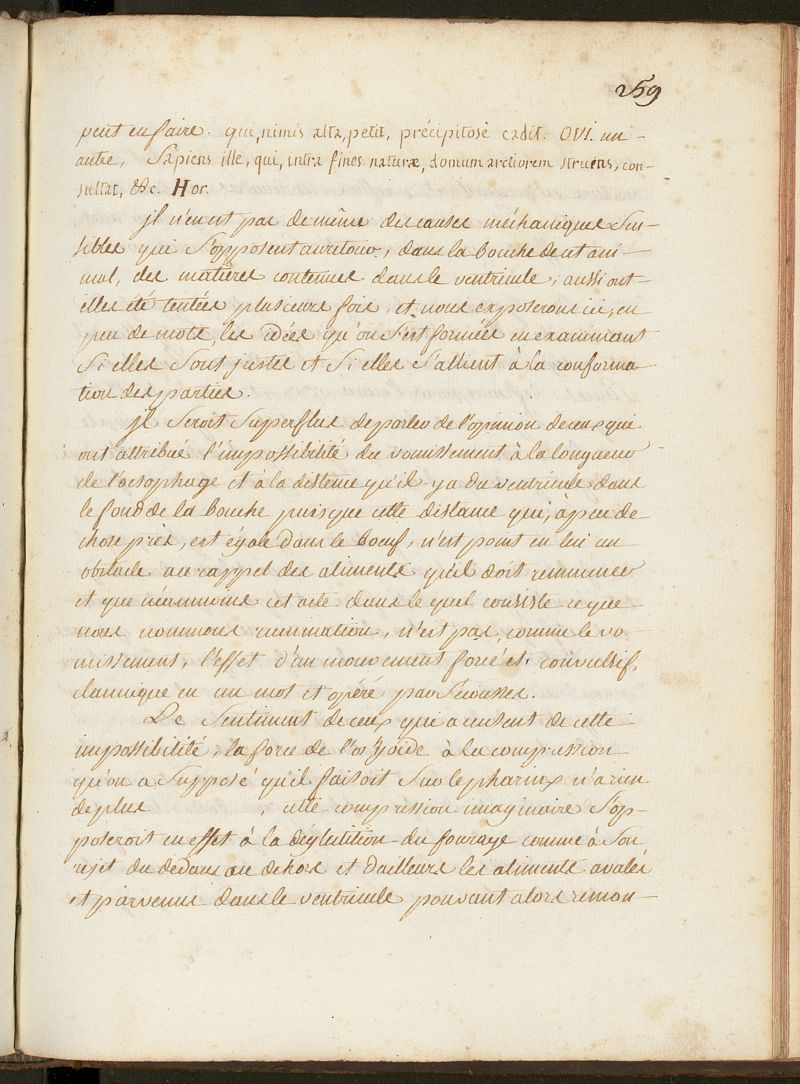 259
peut en faire. qui, nimis alta, petit, précipitosè cadit. OVI. un
autre, Sapiens ille, qui, intra fines naturæ, domum arctiorem struens, con-
sultat, &c. Hor.
jl n'en est pas de même des causes méchaniques Sen-
sibles qui S'opposent au retour, dans la bouche de cet ani-
mal, des matières contenues dans le ventricule, aussi ont
elles été tentées plusieurs fois, et nous exposerons ici, en
peu de mots, les idées qu'on S'est formées en examinant
Si elles Sont justes et Si elles S'allient à la conforma-
tion des parties.
jl Seroit Superflus de parler de l'opinion de ceux qui
ont attribué l'impossibilité du vomissement à la longueur
de l'oesophage et à la distence qu'il-ya du ventricule dans
le fond de la bouche puisque cette distance qui, à peu de
chose près, est égale dans le boeuf, n'est point en lui un
obstacle au rappel des aliments qu'il doit remacher
et que néanmoins cet acte dans le quel consiste ce que
nous nommons rumination, n'est pas, comme le vo-
missement, l'effet d'un mouvement forcé et, convulsif,
clonnique en un mot et opéré par Secousses.
Le Sentiment de ceux qui accusent de cette
impossibilité, la force de l'os Yoide à la compression
qu'on a Supposé qu'il faisoit Sur le pharinx n'a rien
de plus , cette compression imaginaire S'op-
poseroit en effet à la déglutition du fourage comme à Son
rejet du dedans au dehors et d'ailleurs les aliments avalés
et parvenus dans le ventricule pouvant alors remon-